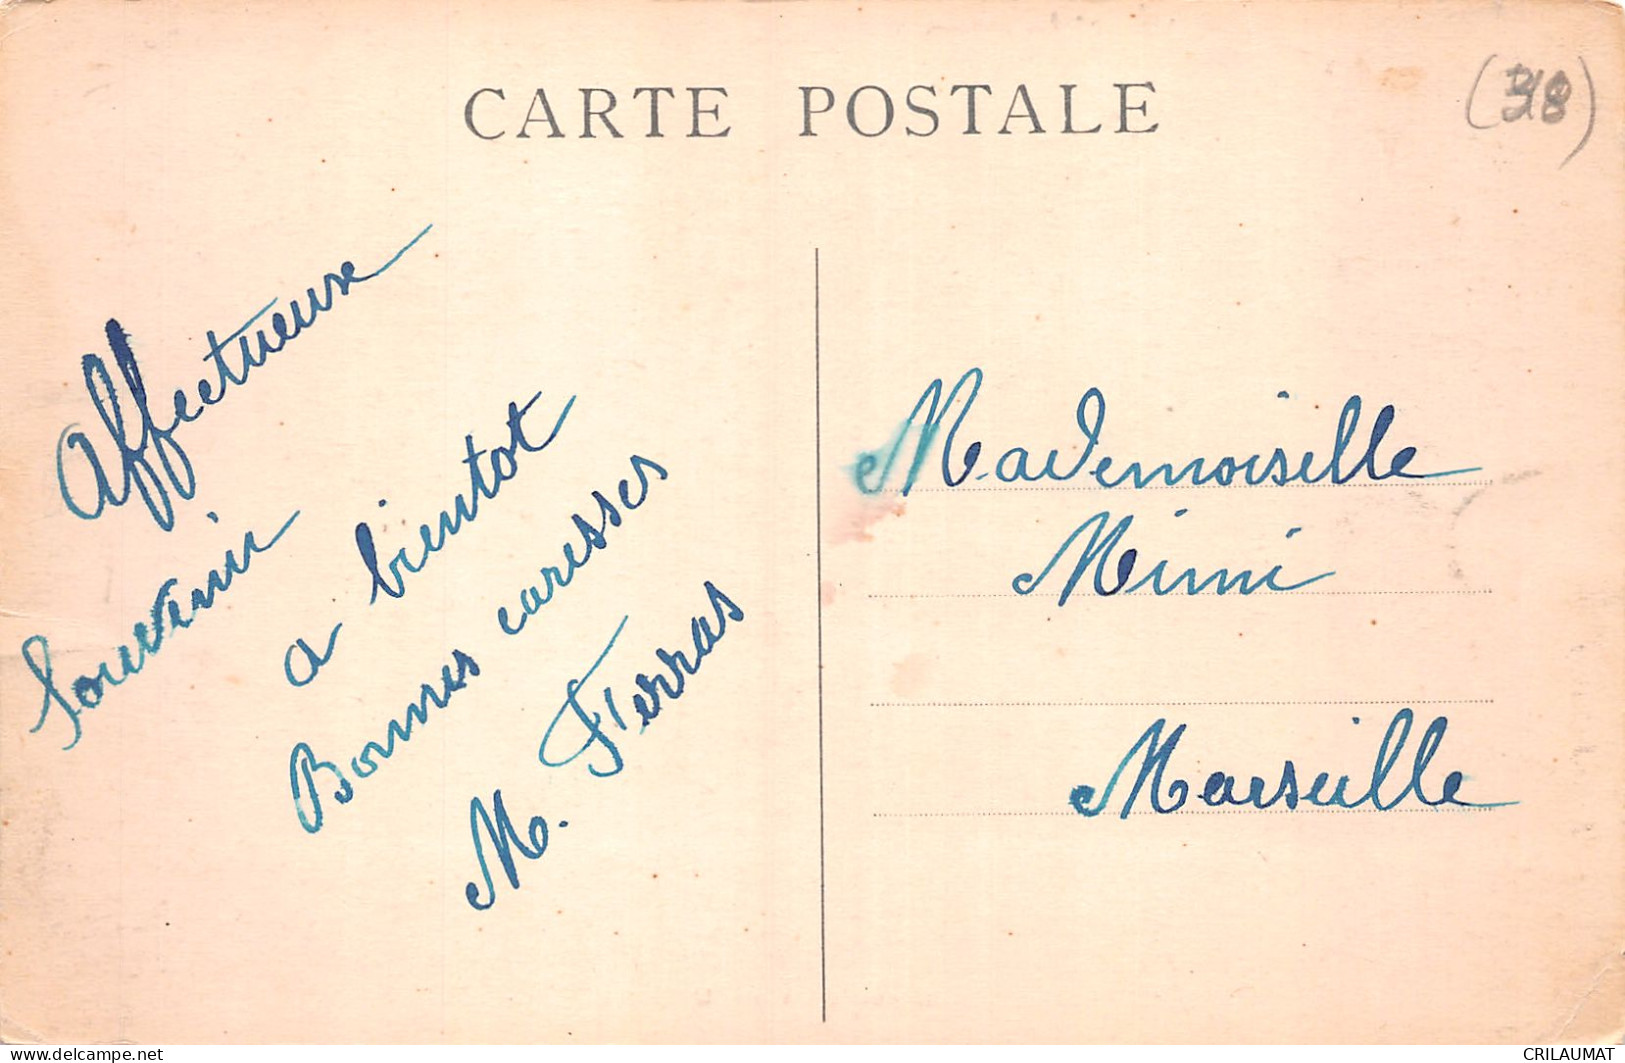 CARTE POSTALE
Affectueuse
Souvenir
a bientot
Bonnes caresses
M. Ferras
Mademoiselle
Mimi
Marseille
www.delcampe.net
CRILAUMAT